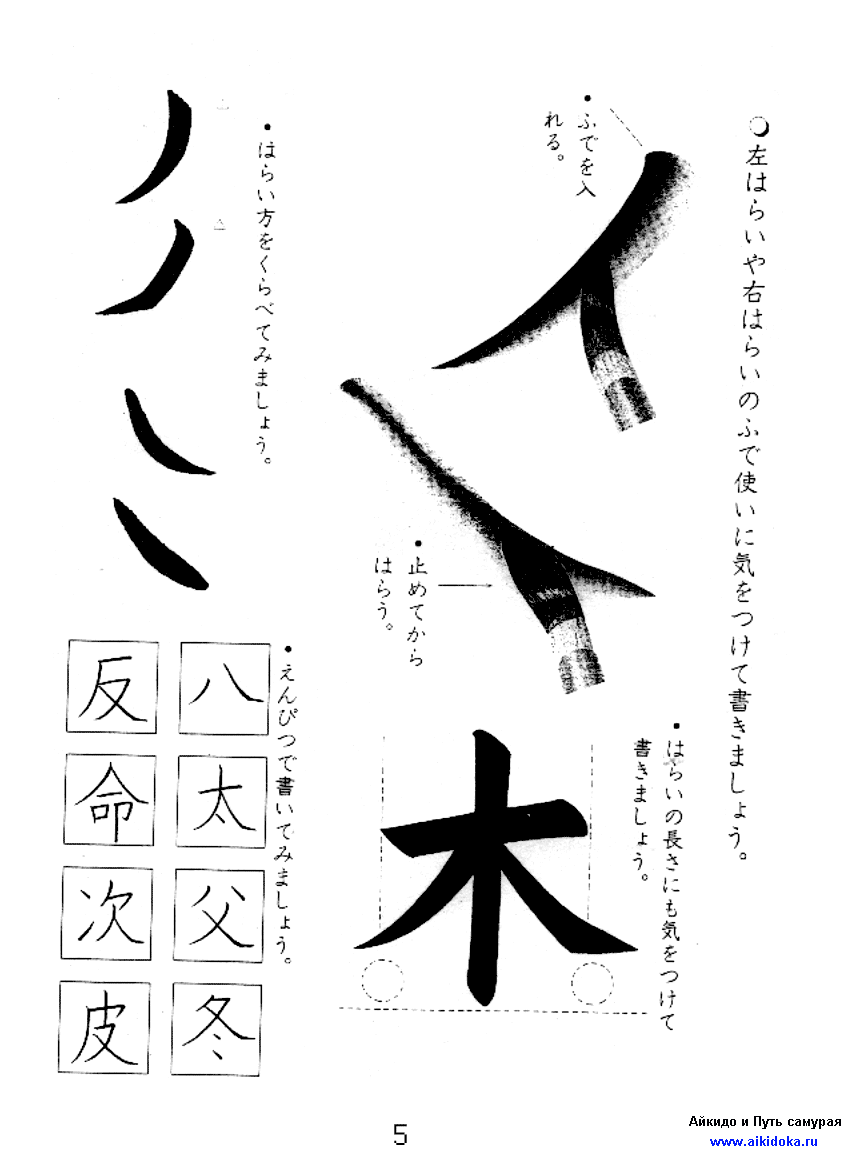 左はらいや右はらいのふで使いに気をつけて書きましょう。
・ふでを入
れる。
・止めてから
はらう。
・はらいの長さにも気をつけて
書きましょう。
木
・はらい方をくらべてみましょう。
・えんぴつで書いてみましょう。
八
太
父
冬
反
命
次
皮
5
Айкидо и Путь самурая
www.aikidoka.ru